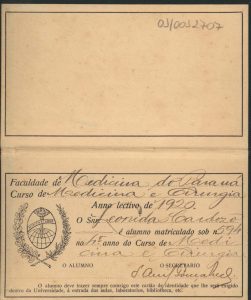 03/0032707
Faculdade de Medicina do Paraná
Curso de Medicina e Cirurgia
Anno lectivo de 1920
O Snr. Leonida Cardozo
é alumno matriculado sob n. 594
no 1º anno do Curso de Medi
cina e Cirurgia
O ALUMNO O SECRETARIO
O alumno deve trazer sempre comsigo este cartão de identidade que lhe será exigido
dentro da Universidade, á entrada das aulas, laboratorios, bibliotheca, etc.